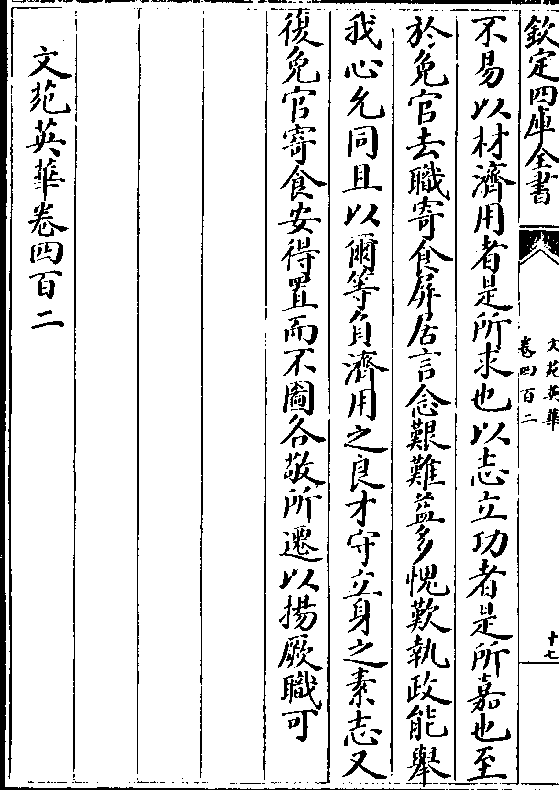 欽定四庫全書
文苑英華
卷四百二
十七
不易以材濟用者是所求也以志立功者是所嘉也至
於免官去職寄食屏居言念艱難益多愧歎執政能舉
我心允同且以爾等負濟用之良才守立身之素志又
復免官寄食安得置而不圖各敬所遷以揚厥職可
文苑英華卷四百二